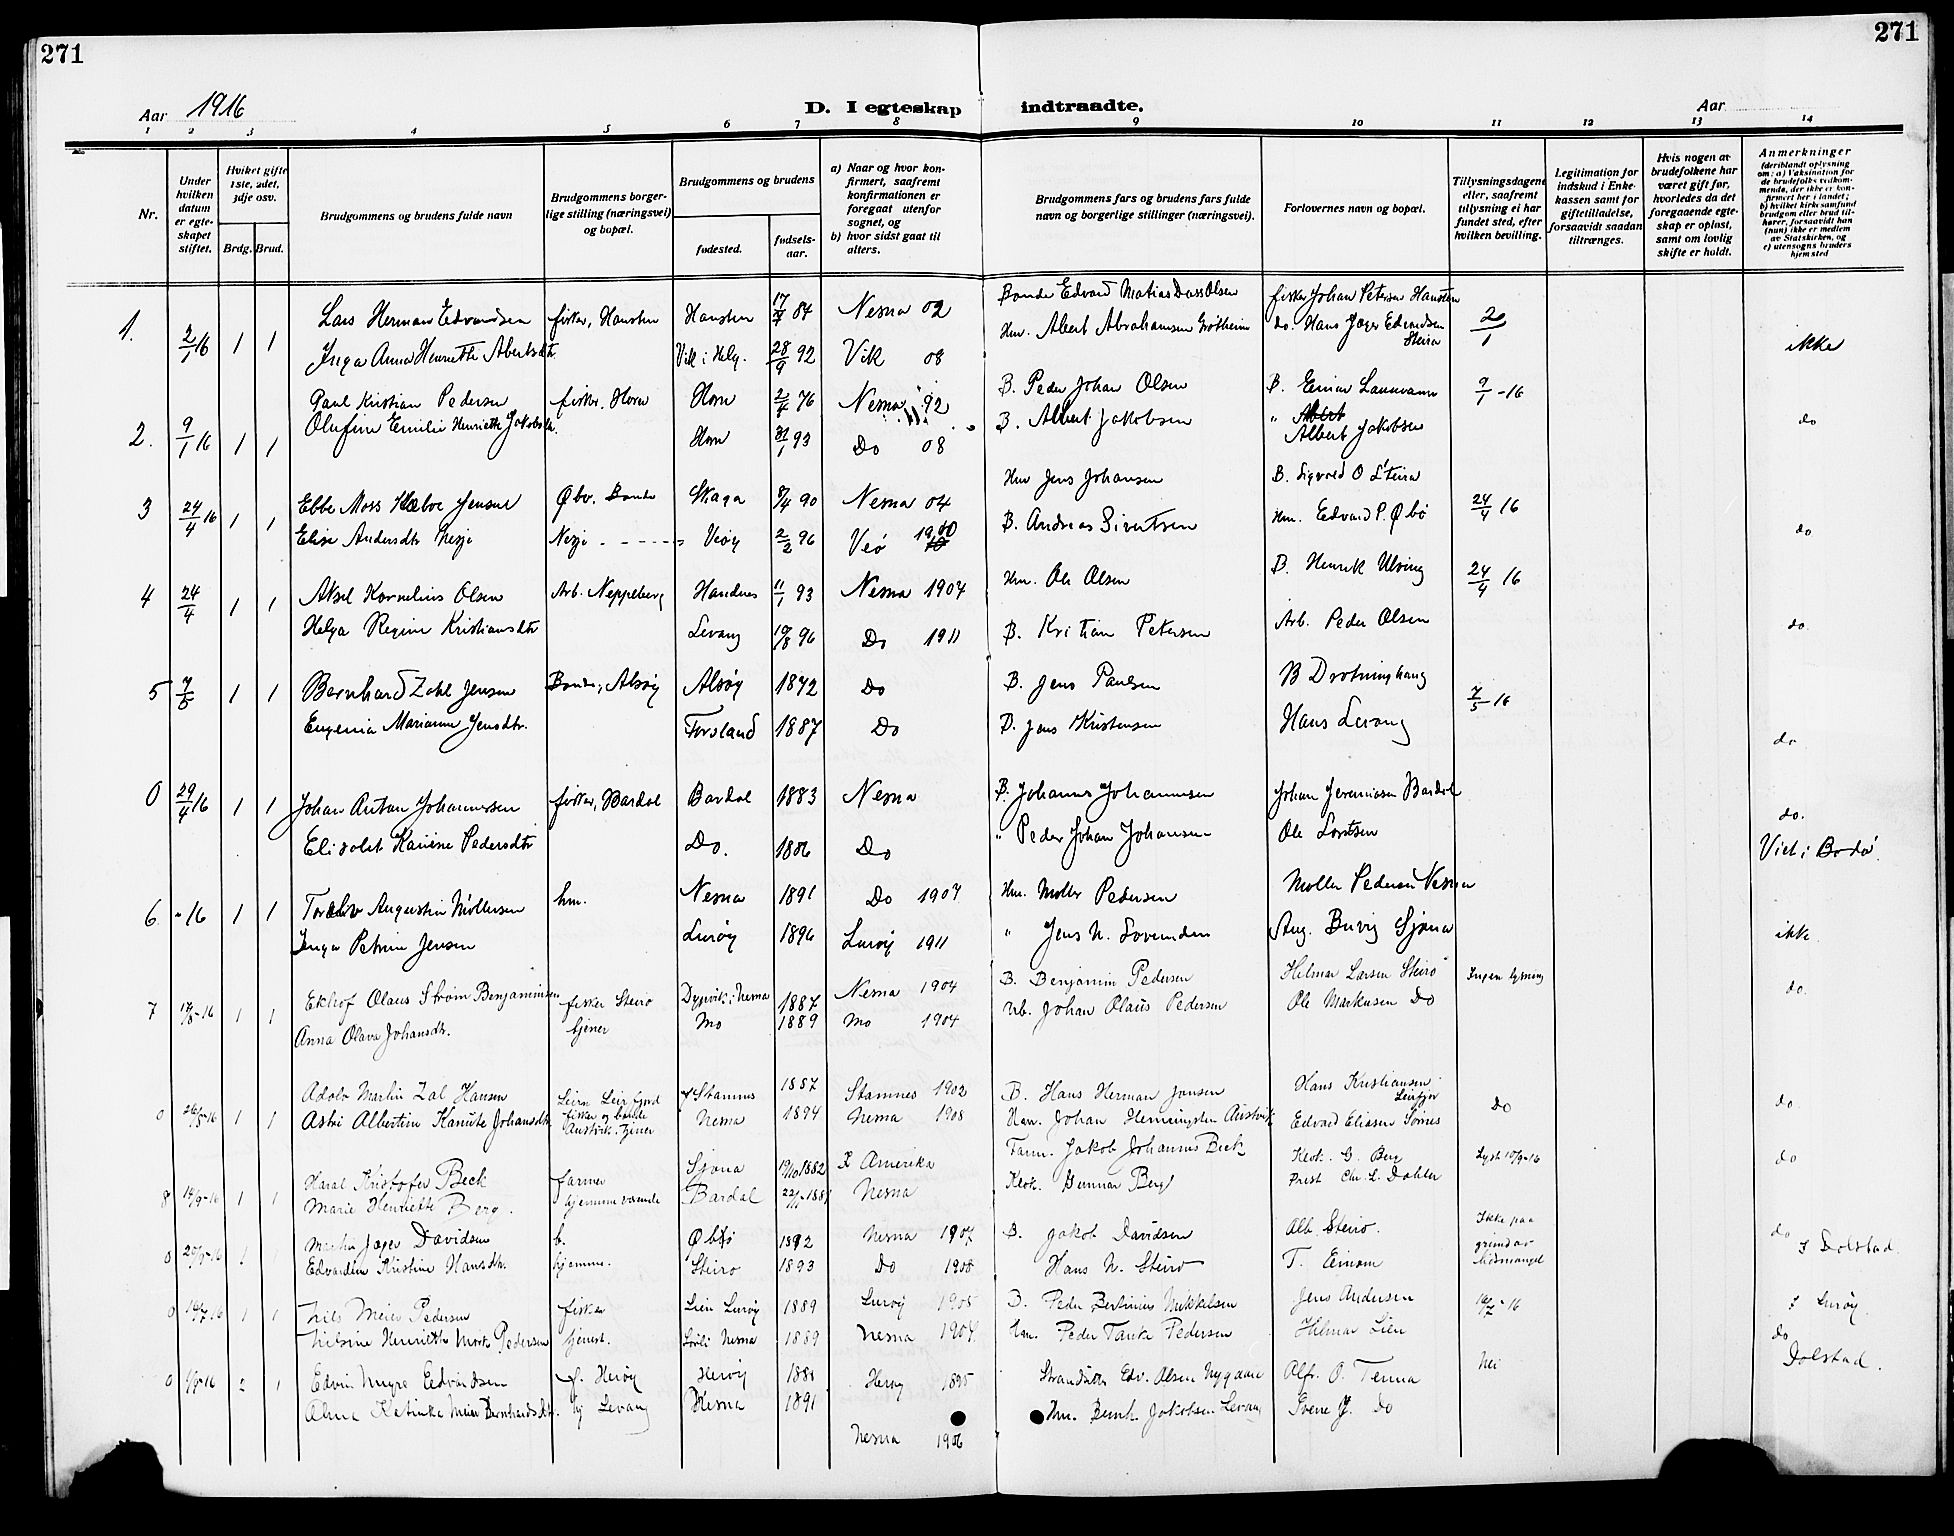 271
271
Aar 1916
D. I egteskap indtraadte.
Aar
1 2 3 4 5 6 7 8 9 10 11 12 13 14
Nr.
Under hvilken datum er egteskapet stiftet.
Hvilket gifte 1ste, 2det, 3dje osv.
Brdg. Brud.
Brudgommens og brudens fulde navn
Brudgommens borgerlige stilling (næringsvei) og bopæl.
Brudgommens og brudens
fødested.
fødselsaar.
a) Naar og hvor konfirmert, saafremt konfirmationen er foregaat utenfor sognet, og
b) hvor sidst gaat til alters.
Brudgommens fars og brudens fars fulde navn og borgerlige stillinger (næringsvei).
Forlovernes navn og bopæl.
Tillysningsdagene eller, saafremt tillysning ei har fundet sted, efter hvilken bevilling.
Legitimation for indskud i Enkekassen samt for giftetilladelse, forsaavidt saadan tiltrænges.
Hvis nogen av brudefolkene har været gift før, hvorledes da det foregaaende egteskap er opløst, samt om lovlig skifte er holdt.
Anmerkninger (deriblandt oplysning om: a) Vaksination for de brudefolks vedkommende, der ikke er konfirmert her i landet; b) hvilket kirkesamfund brudgom eller brud tilhører, forsaavidt han (hun) ikke er medlem av Statskirken, og c) utensogns bruders hjemsted
1. 2/1 16 1 1 Lars Herman Edvardsen fisker, Hansten Hansten 17/7 84 Nesna 02 Bonde Edvard Matias Dass Olsen fisker Johan Petersen Hansten 2/1
Inga Anna Henriette Abertsdtr. Vik i Helg. 28/9 92 Vik 08 Hm. Abert Abrahamsen Grøtheim do. Hans Jæger Edvardsen Steiro ikke
2. 9/1 16 1 1 Paul Kristian Pedersen fisker, Horn Horn 76 Nesna 92 B. Peder Johan Olsen B. Einar Lauvvann 9/1-16
Olufine Emilie Henriette Jakobsdtr. Horn 31/1 93 Do 08 B. Albert Jakobsen " Albert Jakobsen do
3 24/4 16 1 1 Ebbe Moss Hæboe Jensen Øbø. Bonde Skaga 8/4 90 Nesna 04 Hm Jens Johansen B. Sigvard O Steira 24/4 16
Elise Andersdtr Nesje Nesje Veøy 2/2 96 Veø 1910 B. Andreas Sivertsen Hm. Edvard P. Øbø do
4 24/4 1 1 Aksel Kornelius Olsen Arb. Neppelberg Handnes 11/1 93 Nesna 1907 Hm. Ole Olsen B. Henrik Ulving 24/4 16
Helga Regine Kristiansdtr Levang 10/8 96 Do 1911 B. Kristian Petersen Arb. Peder Olsen do.
5 7/5 1 1 Bernhard Zahl Jensen Bonde, Alsøy Alsøy 1872 Do B. Jens Paulsen B Drotninghaug 7/5 16
Eugenia Marianne Jensdtr. Forsland 1887 Do B. Jens Kristensen Hans Levang do
0 29/4 16 1 1 Johan Anton Johannessen fisker, Bardal Bardal 1883 Nesna B. Johannes Johannesen Johan Jeremiasen Bardal do.
Elisabet Karine Pedersdtr Do. 1886 Do " Peder Johan Johansen Ole Lorntsen Viet i Bodø.
6 " 16 1 1 Toralv Augustin Møllersen hm. Nesna 1891 Do 1907 Hm. Møller Pedersen Møller Pedersen Nesna
Inga Petrine Jensen Lurøy 1896 Lurøy 1911 " Jens N. Lovunden Aug. Buvig Sjona ikke
7 17/8-16 1 1 Ekhof Olaus Strøm Benjaminsen fisker Steiro Dypvik i Nesna 1887 Nesna 1904 B. Benjamin Pedersen Hilmar Larsen Steiro Ingen lysning do.
Anna Olava Johansdtr. tjener Mo 1889 Mo 1904 Johan Olaus Pedersen Ole Markusen Do
0 26/8-16 1 1 Adolv Martin Zal Hansen Leirfjord fisker og bonde Stamnes 1887 Stamnes 1902 B. Hans Herman Jensen Hans Kristiansen Leirfjor Do do
Astri Albertine Kanute Johansdtr Austvik. tjener Nesna 1894 Nesna 1908 Johan Hemingsten Austvik Edvard Eliasen Sørnes
8 14/9-16 1 1 Haral Kristofer Beck farmer Sjona 19/10 1882 I Amerika Farm. Jakob Johannes Beck Klok. G. Berg Lyst 10/9-16 do
Marie Henriette Berg. hjemmeværende Bardal Nesna Klok. Gunnar Berg Prest Chr. L. Dahler
0 1 Martin Jæger Davidsen b. Øbø 1892 Nesna 1907 B. Jakob Davidsen Alb. Steiro. Ikke paa grund av tidsmangel do I Dolstad.
Edvardine Kristine Hansdtr. hjemme. Steiro 1893 Do 1908 Hans N. Steiro T. Einom
0 16/7-16 1 1 Nils Meier Pedersen fisker Lien Lurøy 1889 Lurøy 1905 B. Peder Bertinius Mikkelsen Jens Andersen 16/7-16 I Lurøy
Nilsine Henriette Pedersen tjenest. Nesna 1889 Nesna 1904 hm. Peder Tanke Pedersen Hilmar Lien do
0 2 1 Edvin Meyer Edvardsen f. Herøy Herøy 1881 Herøy 1895 Strandsitter Edv. Olsen Nygaard Alfr. O. Tenna Nei Dolstad.
Alma Katinka Meier Bernhardsdtr. hj Levang Nesna 1891 Nesna 1906 hm. Bernh. Jakobsen Levang Do